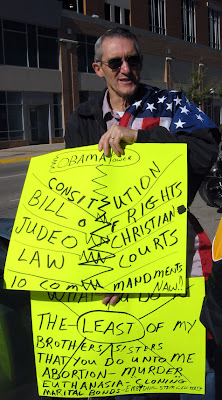 OBAMA POWER
CONSTITUTION
BILL OF RIGHTS
JUDEO CHRISTIAN
LAW COURTS
10 COMMANDMENTS
NAW!!
WHAT YOU DO
THE LEAST OF MY
BROTHERS/SISTERS
THAT YOU DO UNTO ME
ABORTION - MURDER
EUTHANASIA - CLONING
MARITAL BONDS -